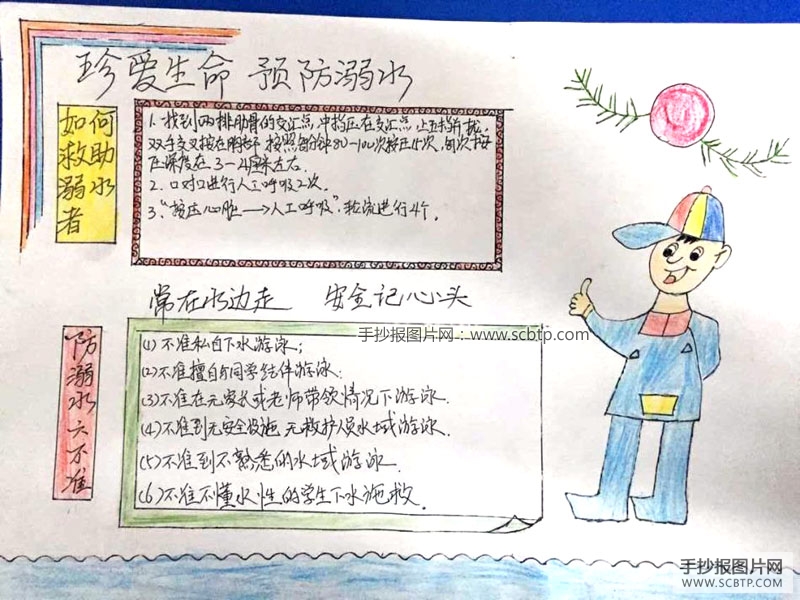 珍爱生命 预防溺水
如何
救助
溺水
者
1. 找到两排肋骨的交汇点，中指压在交汇点，
双手交叉按在胸部 按照每分钟80-100次按压15次，每次按
压深度在3-4厘米左右.
2. 口对口进行人工呼吸2次.
3. “按压心脏→人工呼吸”，轮流进行4个.
常在水边走 安全记心头
手抄报图片网：www.scbtp.com
防溺水六不准
(1) 不准私自下水游泳；
(2) 不准擅自与同学结伴游泳.
(3) 不准在无家长或老师带领情况下游泳.
(4) 不准到无安全设施 无救护人员水域游泳.
(5) 不准到不熟悉的水域游泳.
(6) 不准不懂水性的学生下水施救.
手抄报图片网
WWW.SCBTP.COM